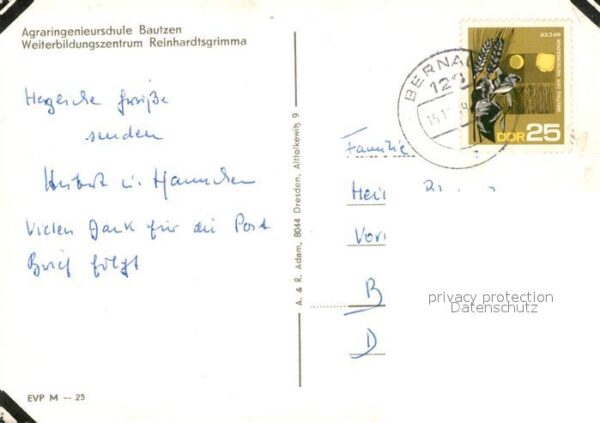 Agraringenieurschule Bautzen
Weiterbildungszentrum Reinhardtsgrimma
Herzliche Grüße
senden
Herbert u. Hannchen
Vielen Dank für die Post
Brief folgt
EVP M — 25
A. & R. Adam, 8044 Dresden, Altlolkewitz 9
BERNA
DDR 25
Familie
Hei
Vor
B
D
privacy protection
Datenschutz